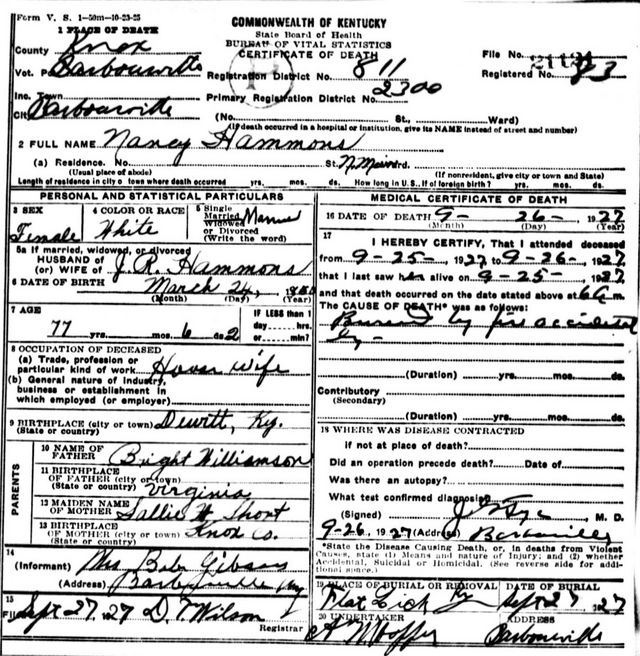 Form V. S. 1-50m-10-23-25
COMMONWEALTH OF KENTUCKY
State Board of Health
BUREAU OF VITAL STATISTICS
CERTIFICATE OF DEATH
1 PLACE OF DEATH
County Knox
Vot. P Barbourville
Registration District No. 811
File No.
Registered No. 93
Inc. Town
Primary Registration District No. 2300
Cit Barbourville
(No. St., Ward)
(If death occurred in a hospital or institution, give its NAME instead of street and number)
2 FULL NAME Nancy Hammons
(a) Residence. No. St. N Main rd.
(Usual place of abode) (If nonresident, give city or town and State)
Length of residence in city o town where death occurred yrs. mos. ds. How long in U. S., if of foreign birth? yrs. mos. ds.
PERSONAL AND STATISTICAL PARTICULARS
3 SEX Female
4 COLOR OR RACE White
5 Single
Married Married
Widowed
or Divorced
(Write the word)
5a If married, widowed, or divorced
HUSBAND OF
(or) WIFE OF J. R. Hammons
6 DATE OF BIRTH March 24, 1850
(Month) (Day), (Year)
7 AGE
77 yrs. mos. 6 ds 2
IF LESS than 1
day hrs.
or min.
8 OCCUPATION OF DECEASED
(a) Trade, profession or
particular kind of work House wife
(b) General nature of industry,
business or establishment in
which employed (or employer)
9 BIRTHPLACE (city or town) Dewitt, Ky.
(State or country)
PARENTS
10 NAME OF
FATHER Bright Williamson
11 BIRTHPLACE
OF FATHER (city or town)
(State or country) Virginia
12 MAIDEN NAME
OF MOTHER Sallie Short
13 BIRTHPLACE
OF MOTHER (city or town) Knox Co.
(State or country)
14
(Informant) Mrs Bob Gibson
(Address) Barbourville Ky
15
Filed Sept 27, 27 D. T. Wilson
Registrar
MEDICAL CERTIFICATE OF DEATH
16 DATE OF DEATH 9- 26- , 1927
(Month) (Day) (Year)
17
I HEREBY CERTIFY, That I attended deceased
from 9-25-, 1927 to 9-26-, 1927
that I last saw her alive on 9-25-, 1927
and that death occurred on the date stated above at 6 A m.
The CAUSE OF DEATH* was as follows:
Burned by fire accidental
ly -
(Duration) yrs. mos. ds.
Contributory
(Secondary)
(Duration) yrs. mos. ds.
18 WHERE WAS DISEASE CONTRACTED
if not at place of death?
Did an operation precede death? Date of
Was there an autopsy?
What test confirmed diagnosis?
(Signed) M. D.
9-26, 1927 (Address) Barbourville
*State the Disease Causing Death, or, in deaths from Violent
Causes, state (1) Means and nature of Injury; and (2) whether
Accidental, Suicidal or Homicidal. (See reverse side for addi-
tional space.)
19 PLACE OF BURIAL OR REMOVAL
DATE OF BURIAL
Flat Lick Ky Sept 27 1927
20 UNDERTAKER
ADDRESS
Barbourville